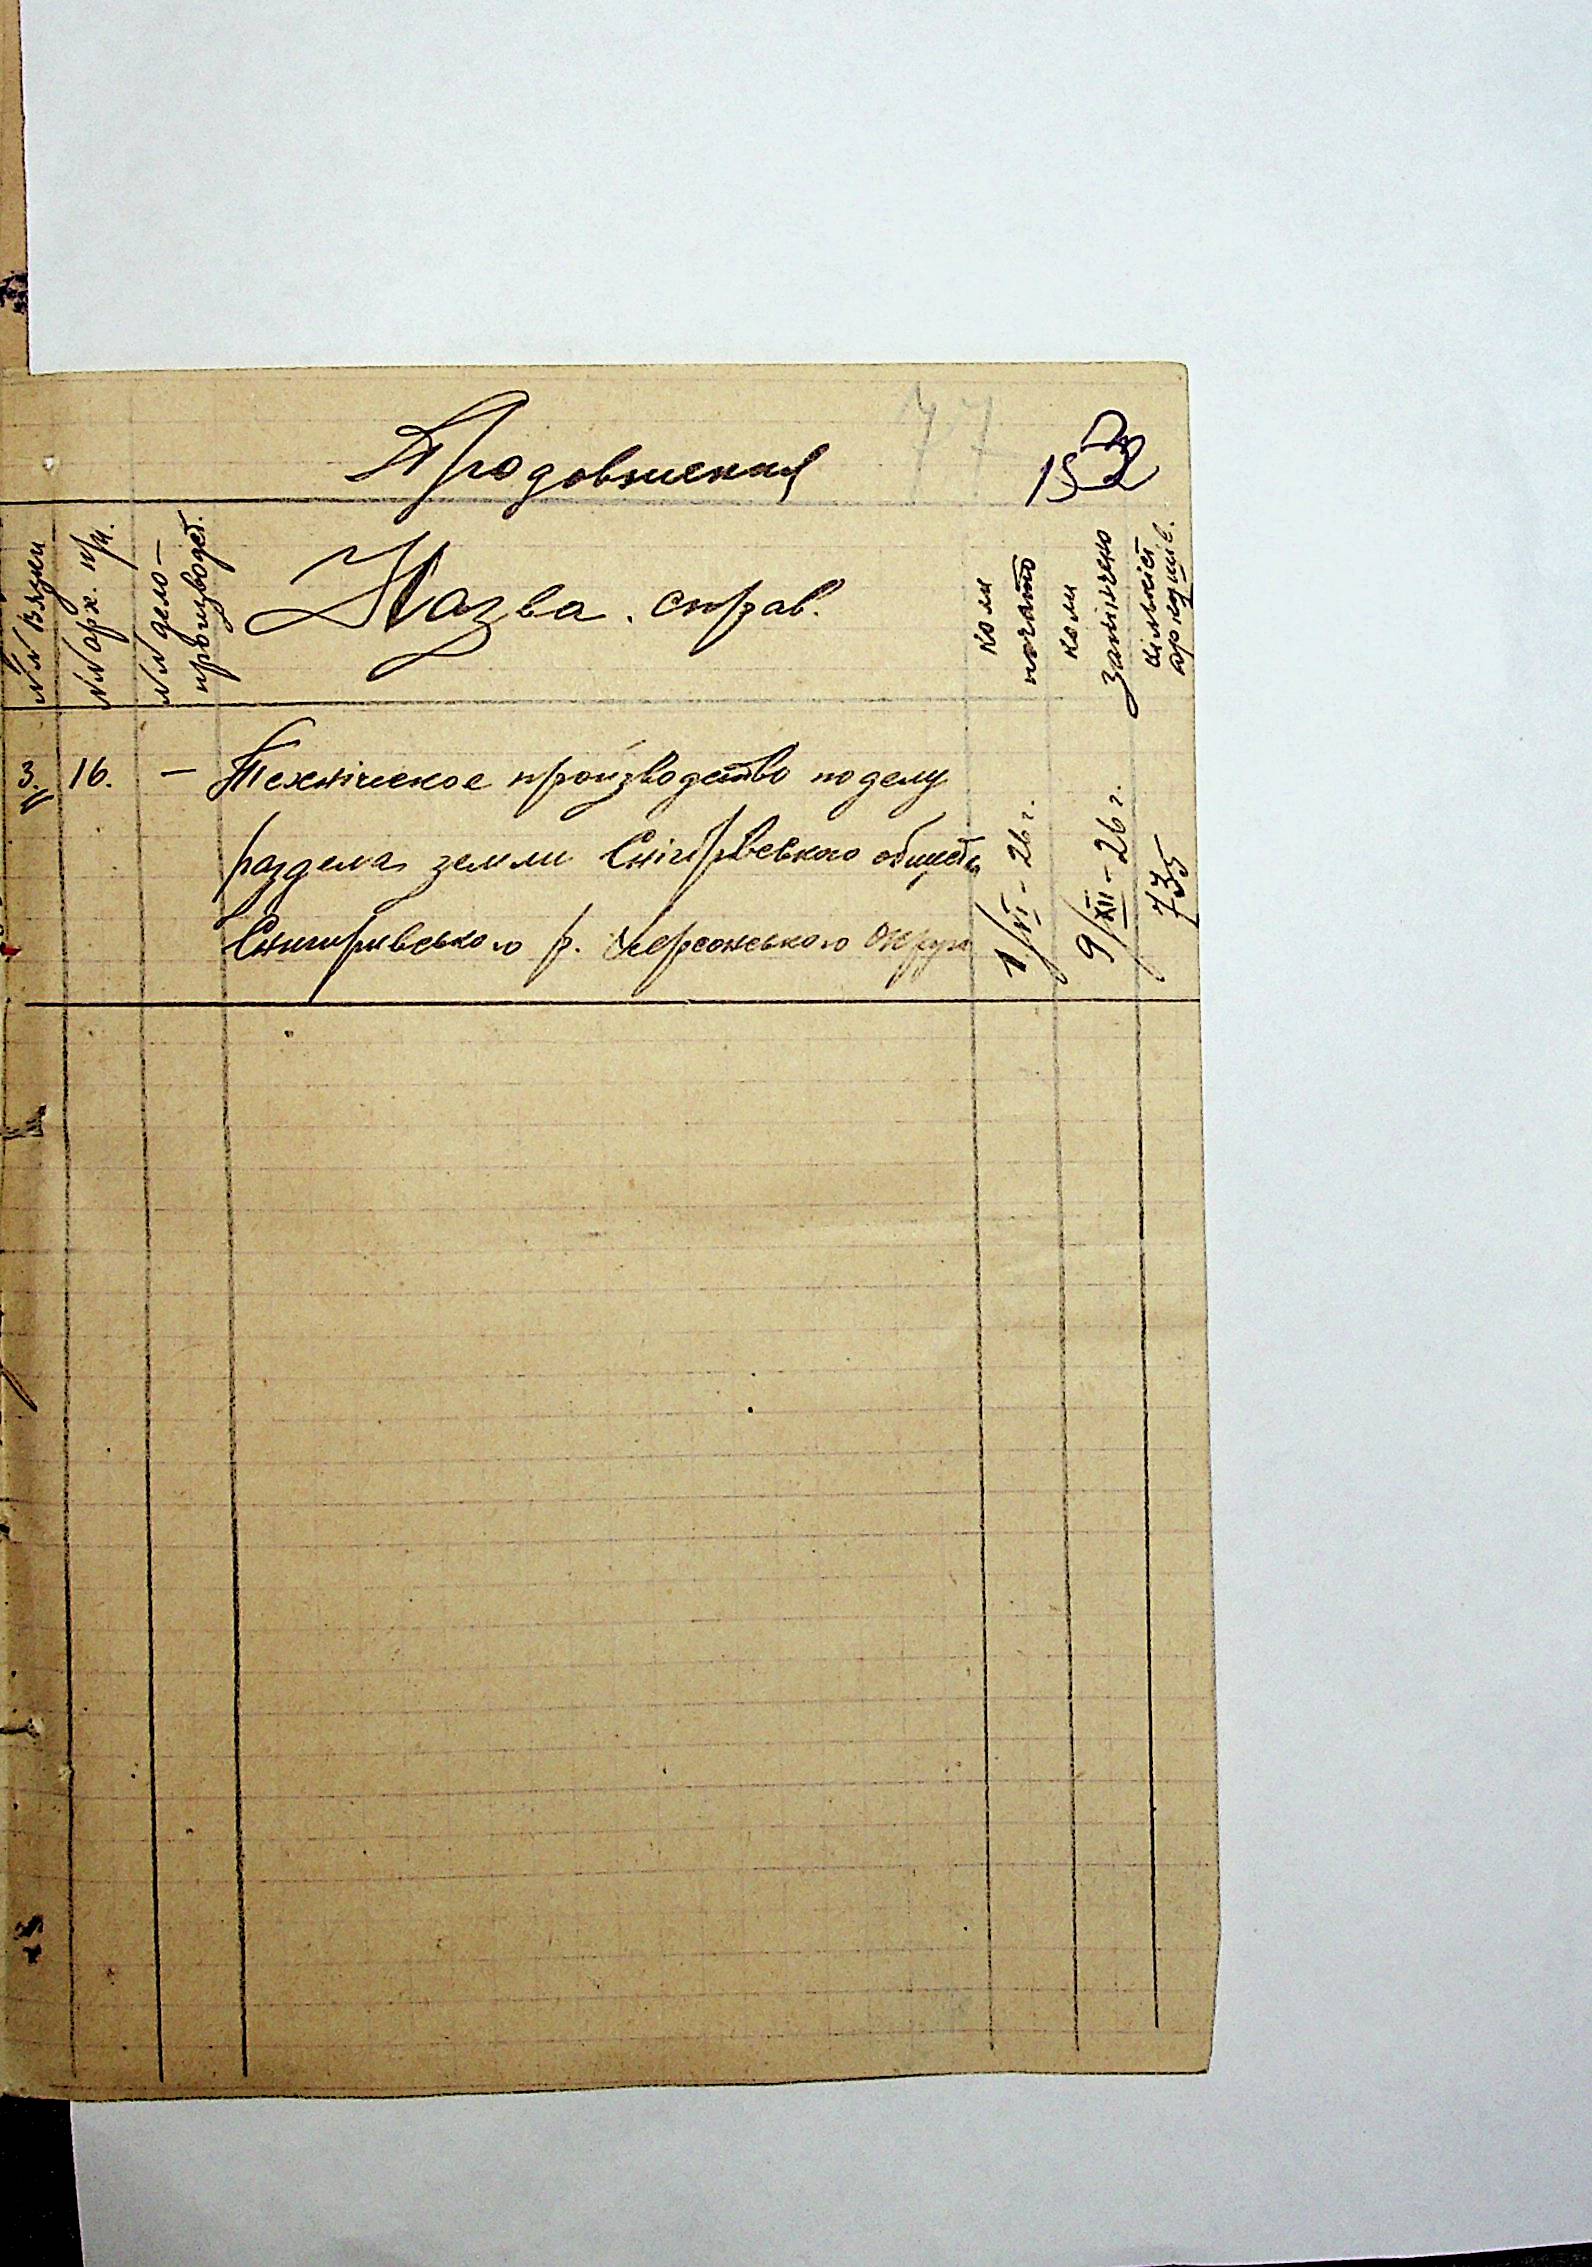 77
Продовження
152
№№ вязки
№№ арх. пр.
№№ дело-
производст.
Назва справ.
коли
почато
коли
закінчено
кількість
аркушів.
3. 16. — Технічемое производство по делу
раздела земли Снігірівського общества
Снигиривського р. Херсонського округи
1/VI - 26 г.
9/XII - 26 г.
735